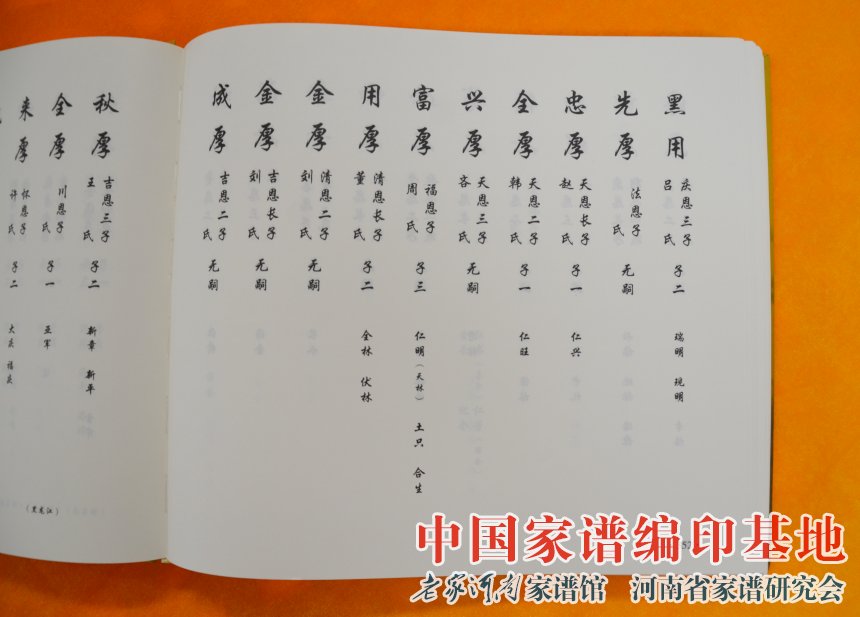 黑用 庆恩三子 吕氏 子二 瑞明 现明
先厚 法恩子 氏 无嗣
忠厚 天恩长子 赵氏 子一 仁兴
全厚 天恩二子 韩氏 子一 仁旺
兴厚 天恩三子 客氏 无嗣
富厚 福恩子 周氏 子三 仁明（天林） 土只 合生
用厚 清恩长子 董氏 子二 全林 伏林
金厚 清恩二子 刘氏 无嗣
金厚 吉恩长子 刘氏 无嗣
成厚 吉恩二子 氏 无嗣
秋厚 吉恩三子 王氏 子二 新章 新平
全厚 川恩子 氏 子一 亚军
来厚 怀恩子 许氏 子二 大庆 福庆
（黑龙江）
中国家谱编印基地
老家河南家谱馆 河南省家谱研究会